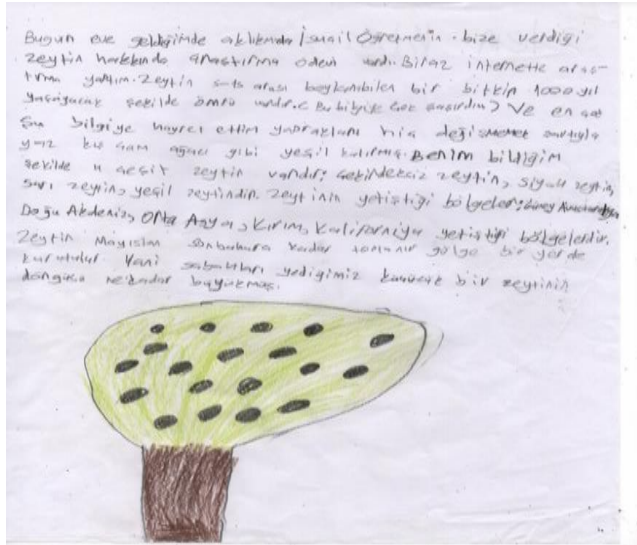 Bugün eve geldiğimde aklımda İsmail Öğretmenin bize verdiği
zeytin hakkında araştırma ödevi vardı. Biraz internette araş-
tırma yaptım. Zeytin arası bir bitkin 1000 yıl
yaşayacak şekilde ömrü vardır. (Bu bilgiye çok şaşırdım) Ve en çok
Şu bilgiye hayret ettim yaprakları hiç değişmemek şartıyla
yaz kış çam ağacı gibi yeşil kalırmış. Benim bildiğim
şekilde 4 çeşit zeytin vardır; Çekirdeksiz zeytin, siyah zeytin,
sarı zeytin, yeşil zeytindir. Zeytinin yetiştiği bölgeler: Güney
Doğu Akdeniz, Orta Asya, Kırım, Kaliforniya yetiştiği bölgelerdir.
Zeytin Mayıstan sonbahara kadar toplanır gölge bir yerde
kurutulur. Yani sabahları yediğimiz küçücük bir zeytinin
döngüsü ne kadar büyükmüş.